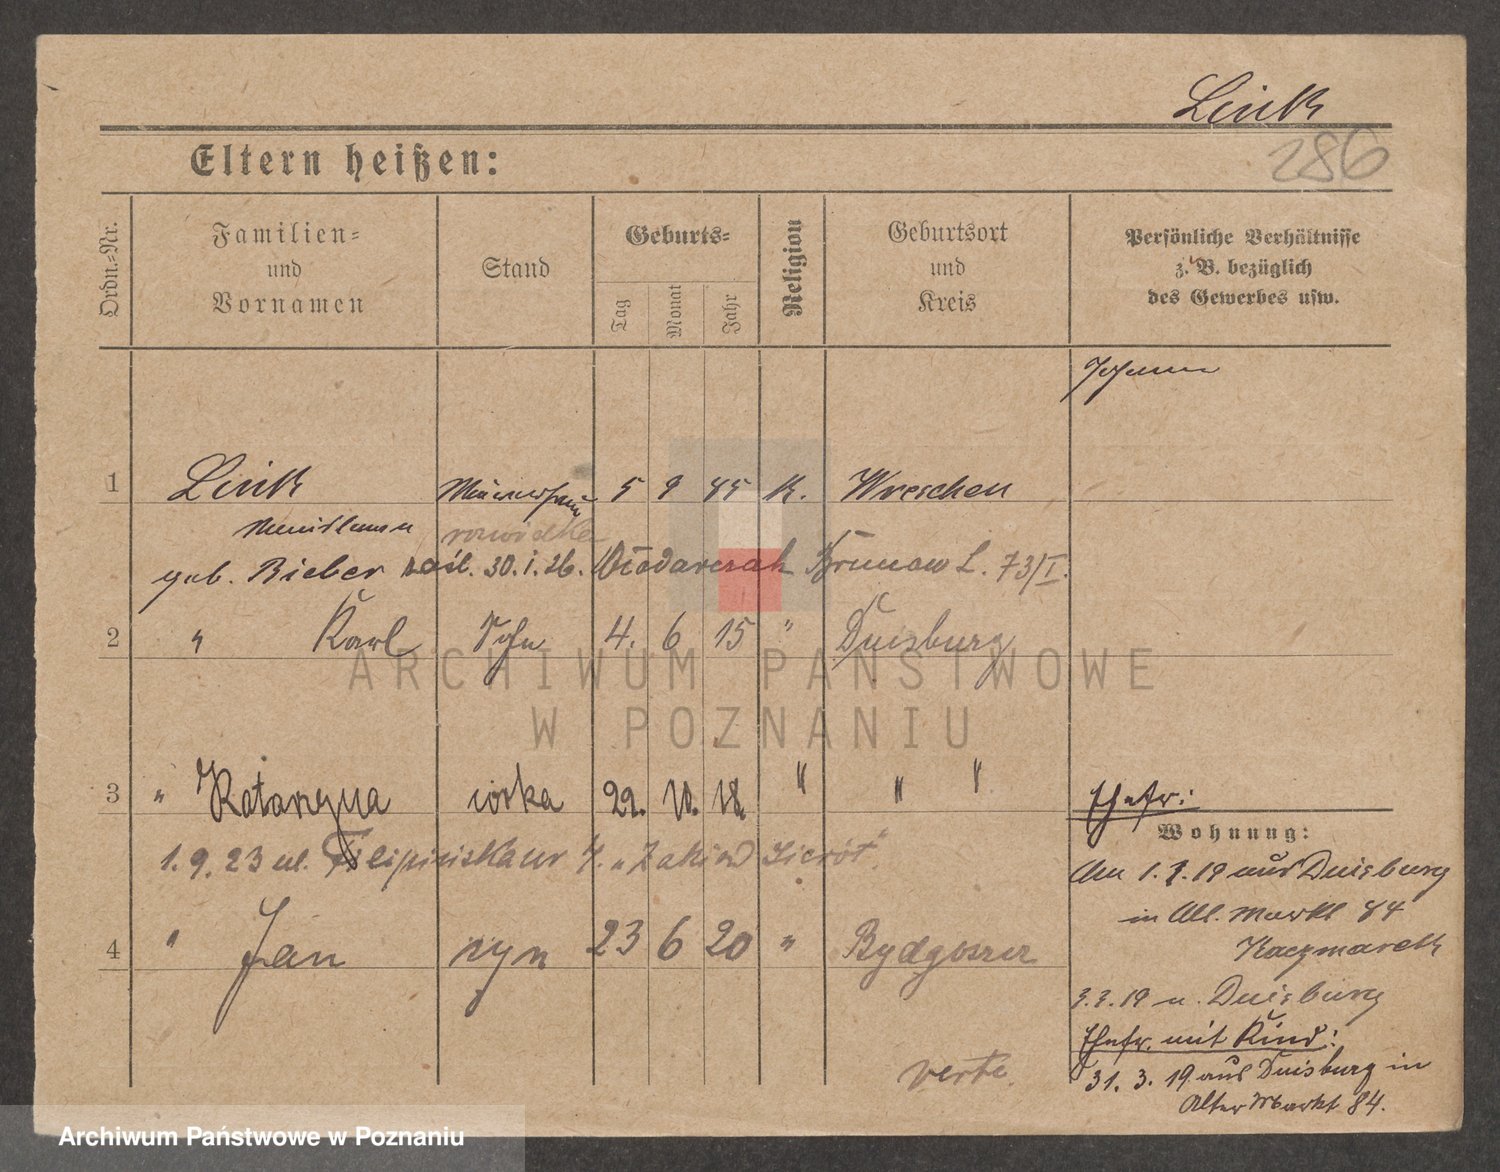 Link
286
Eltern heißen:
Ordn.-Nr.
Familien-
und
Vornamen
Stand
Geburts-
Tag
Monat
Jahr
Religion
Geburtsort
und
Kreis
Persönliche Verhältnisse
z. B. bezüglich
des Gewerbes usw.
Johann
1 Link 5 9 85 K. Wreschen
geb. Bieber 30.1.26. Włodarczak L. 73/I.
2 " Karl Sohn 4. 6 15 " Duisburg
3 " Katarzyna córka 29. 10. 18. " " "
Ehefr:
Wohnung:
1.9.23 ul. 4. Zakład Sierót.
Am 1. 3. 19 aus Duisburg
in All. Markt 84
Kaczmarek
4 " Jan syn 23 6 20 " Bydgoszcz
3.3.19 n. Duisburg
Ehefr. mit Kind:
31. 3. 19 aus Duisburg in
Alter Markt 84.
verte.
ARCHIWUM PAŃSTWOWE
W POZNANIU
Archiwum Państwowe w Poznaniu